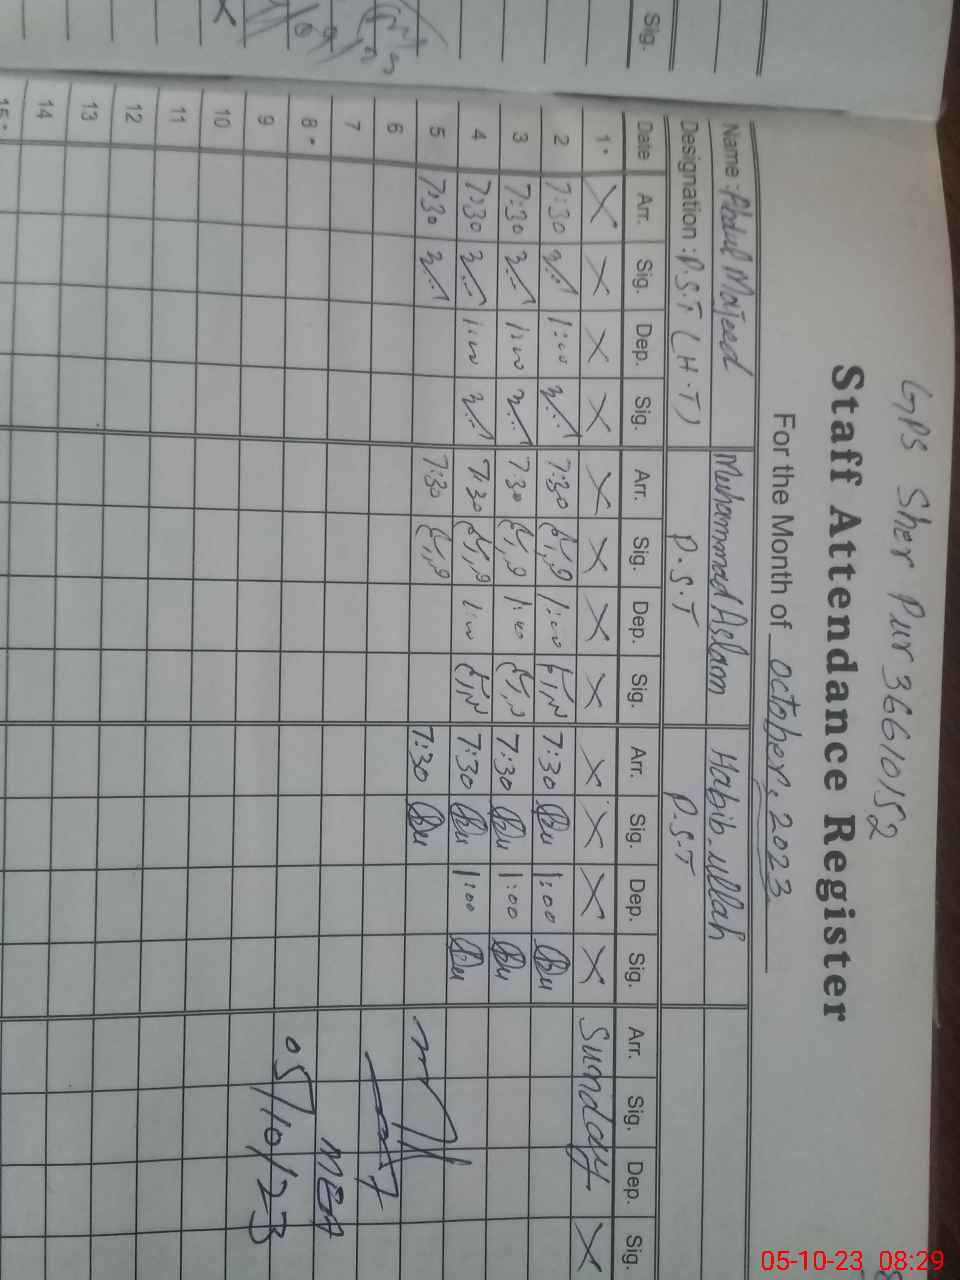 GPS Sher Pur 36610152
Staff Attendance Register
For the Month of October, 2023
Name : Abdul Majeed Muhammad Aslam Habib ullah
Designation : P.S.T (H.T) P.S.T P.S.T
Date Arr. Sig. Dep. Sig. Arr. Sig. Dep. Sig. Arr. Sig. Dep. Sig. Arr. Sig. Dep. Sig.
1 X X X X X X X X X X X X Sunday X
2 7:30 1:00 7:30 1:00 7:30 1:00
3 7:30 1:00 7:30 1:00 7:30 1:00
4 7:30 1:00 7:30 1:00 7:30 1:00
5 7:30 7:30 7:30
6
7
8 MEA
9 05/10/23
10
11
12
13
14
15
Sig.
05-10-23 08:29